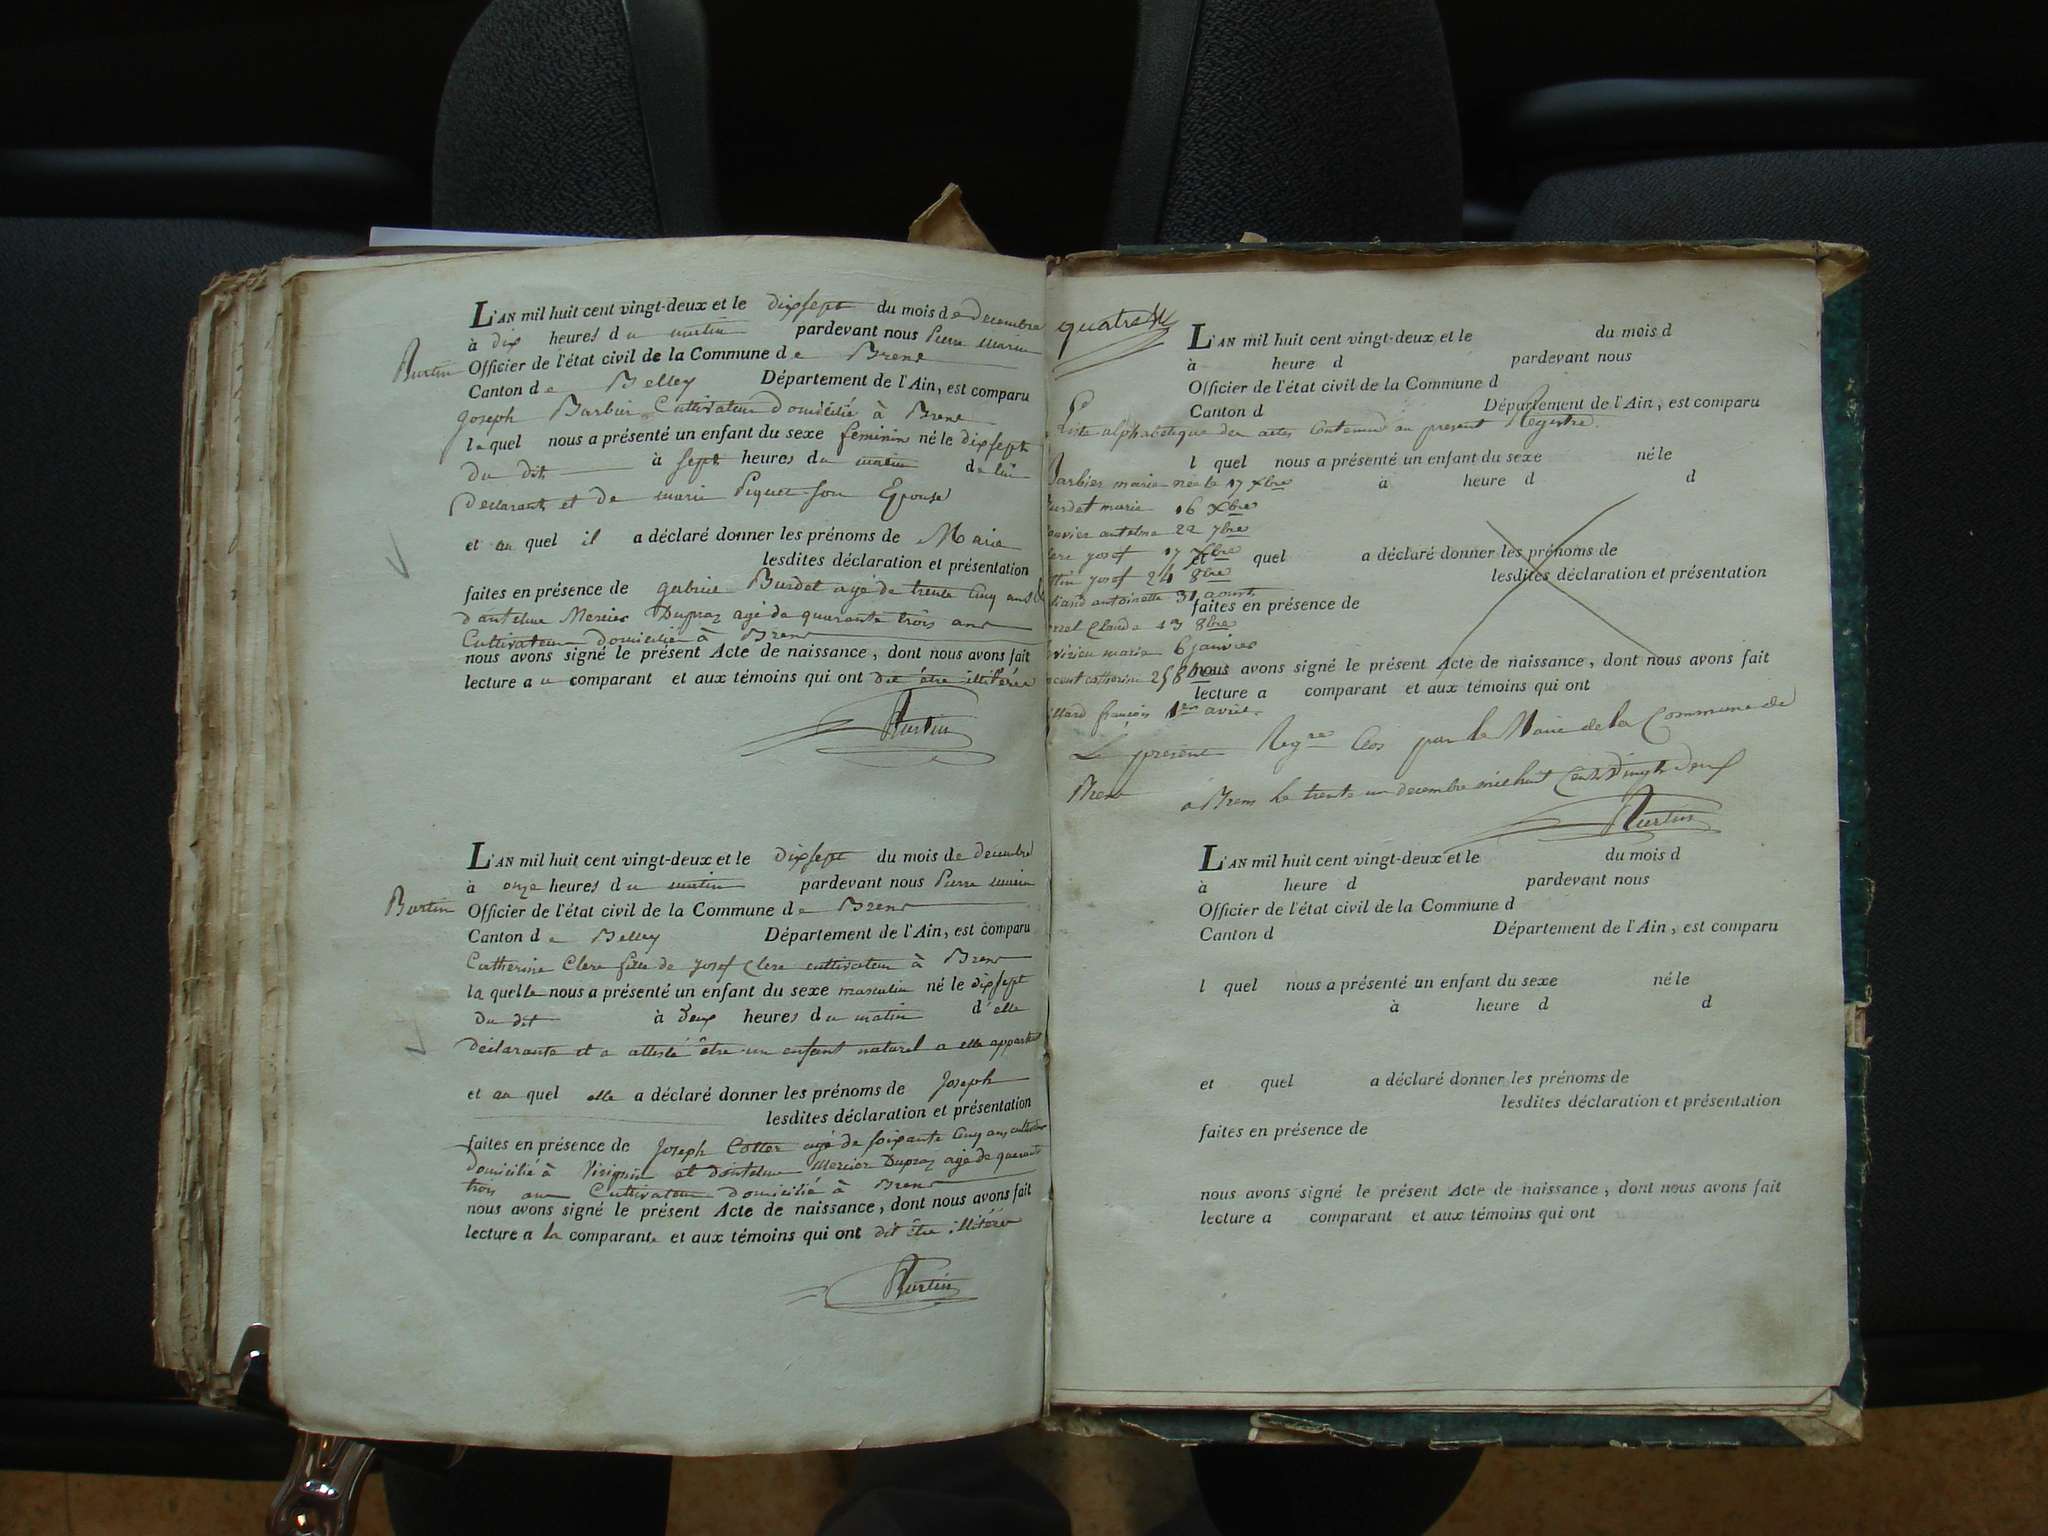 L'AN mil huit cent vingt-deux et le dixsept du mois de Decembre
à dix heures du matin pardevant nous Pierre marin
Burtin Officier de l'état civil de la Commune de Brens
Canton de Belley Département de l'Ain, est comparu
Joseph Barbier Cultivateur Domicilié à Brens
lequel nous a présenté un enfant du sexe feminin né le dixsept
du dit à sept heures du matin de lui
Declarant et de marie Piquet son Epouse
et au quel il a déclaré donner les prénoms de Marie
lesdites déclaration et présentation
faites en présence de gabriel Burdet agé de trente Cinq ans &
d'antelme Mercier Dupraz agé de quarante trois ans
Cultivateurs domiciliés à Brens
nous avons signé le présent Acte de naissance, dont nous avons fait
lecture au comparant et aux témoins qui ont dit être illitérés
Burtin
L'AN mil huit cent vingt-deux et le dixsept du mois de decembre
à onze heures du matin pardevant nous Pierre marin
Burtin Officier de l'état civil de la Commune de Brens
Canton de Belley Département de l'Ain, est comparu
Catherine Clerc fille de Josef Clerc cultivateur à Brens
laquelle nous a présenté un enfant du sexe masculin né le dixsept
du dit à deux heures du matin d'elle
declarante et a attesté être un enfant naturel a elle appartenant
et au quel elle a déclaré donner les prénoms de Joseph
lesdites déclaration et présentation
faites en présence de Joseph Cotter agé de soixante Cinq ans cultivateur
domicilié à Virignin et d'antelme Mercier Dupraz agé de quarante
trois ans Cultivateur domicilié à Brens
nous avons signé le présent Acte de naissance, dont nous avons fait
lecture a la comparante et aux témoins qui ont dit être illitérés
Burtin
quatre
L'AN mil huit cent vingt-deux et le du mois d
à heure d pardevant nous
Officier de l'état civil de la Commune d
Canton d Département de l'Ain, est comparu
Liste alphabetique des actes Contenus au present Registre.
l quel nous a présenté un enfant du sexe né le
Barbier marie née le 17 Xbre à heure d d
Burdet marie 16 Xbre
antelme 22 7bre
Clerc josef 17 Xbre
et quel a déclaré donner les prénoms de
josef 24 8bre
lesdites déclaration et présentation
antoinette 31 aout
faites en présence de
Claude 13 8bre
marie 6 janvier
catherine 25 8bre
nous avons signé le présent Acte de naissance, dont nous avons fait
lecture a comparant et aux témoins qui ont
françois 1er avril.
Le present Regre Clos par le Maire de la Commune de
Brens a Brens le trente un decembre mil huit Cent Vingt Deux
Burtin
L'AN mil huit cent vingt-deux et le du mois d
à heure d pardevant nous
Officier de l'état civil de la Commune d
Canton d Département de l'Ain, est comparu
l quel nous a présenté un enfant du sexe né le
à heure d d
et quel a déclaré donner les prénoms de
lesdites déclaration et présentation
faites en présence de
nous avons signé le présent Acte de naissance, dont nous avons fait
lecture a comparant et aux témoins qui ont